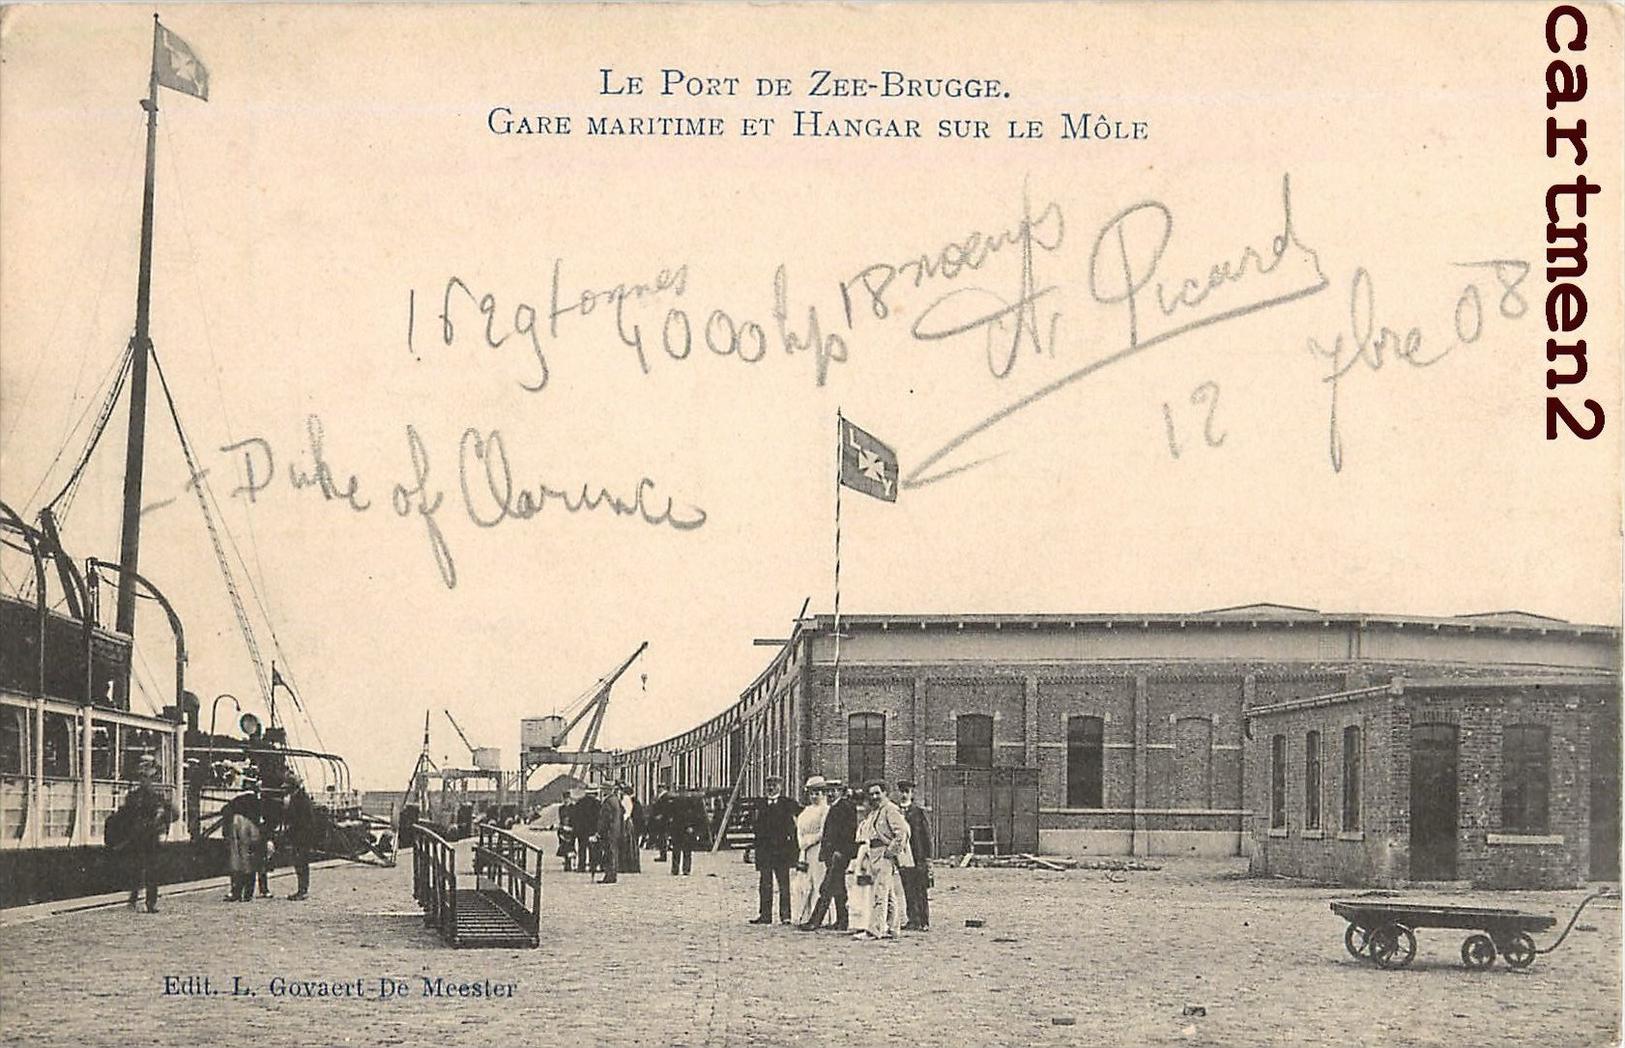 Le Port de Zee-Brugge.
Gare maritime et Hangar sur le Môle
1629 tonnes 4000 hp 18 nœuds
A. Picard
12 7bre 08
Duke of Clarence
L Y
L Y
1
Edit. L. Govaert-De Meester
cartmen2